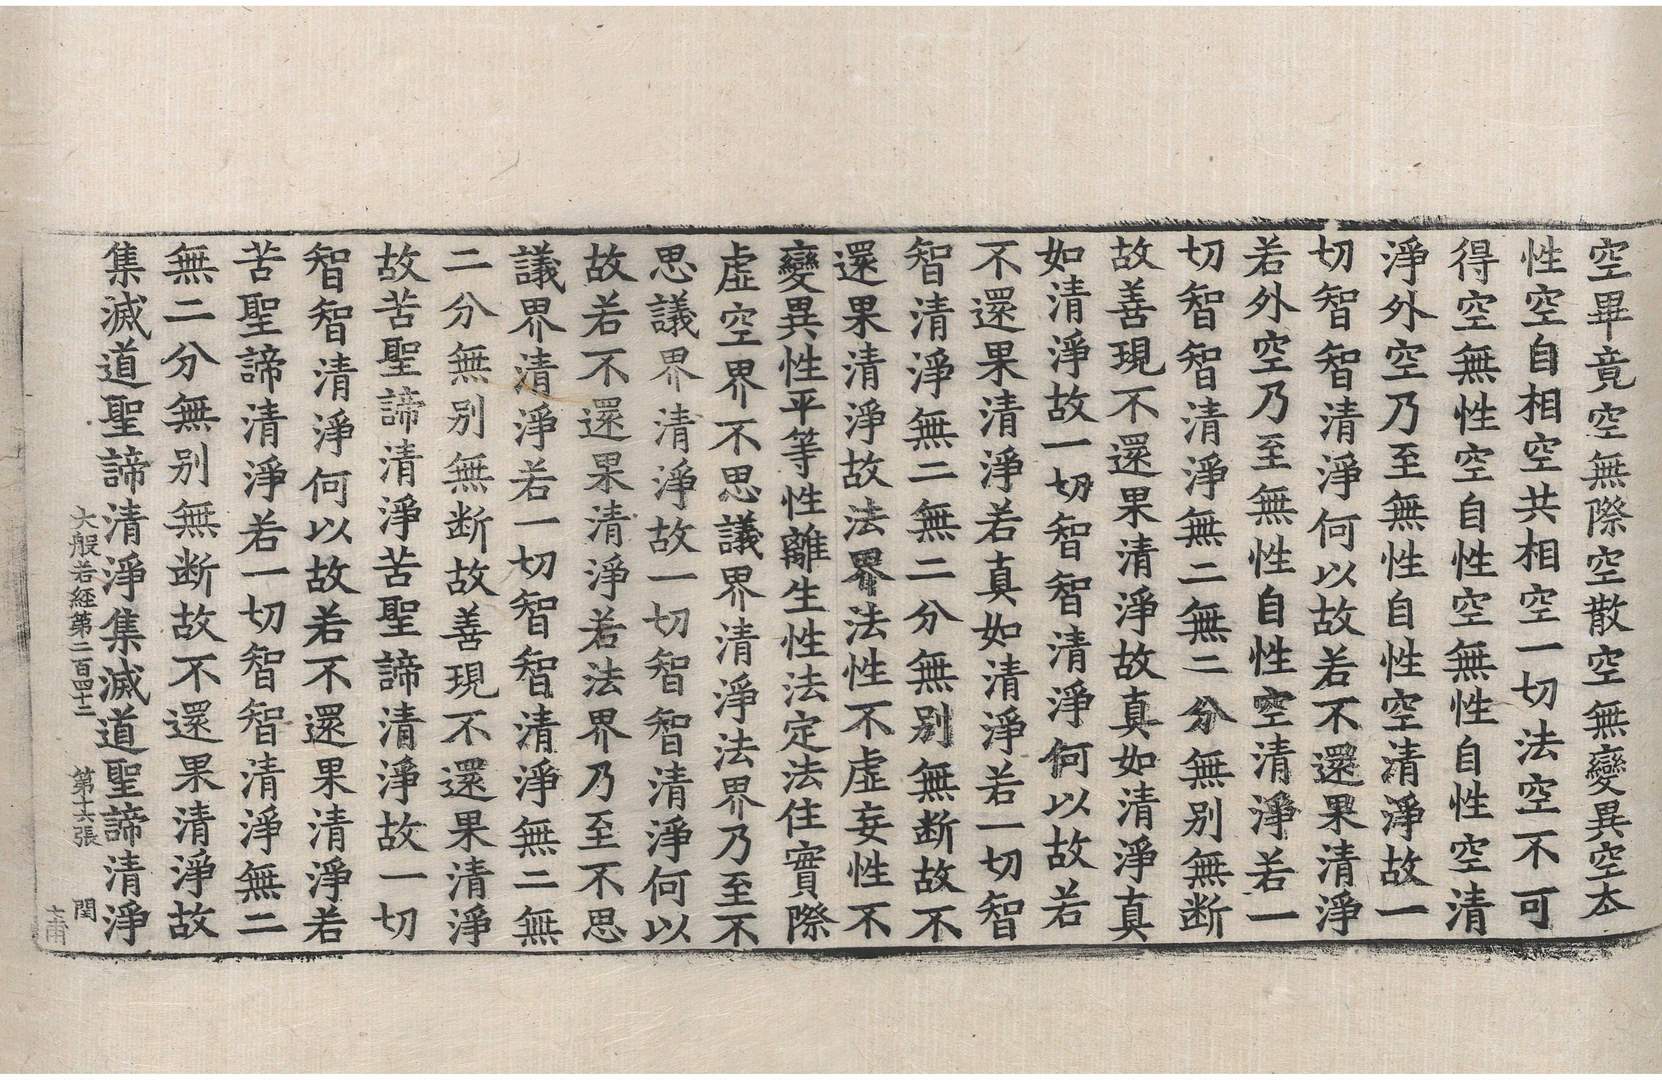 空畢竟空無際空散空無變異空本
性空自相空共相空一切法空不可
得空無性空自性空無性自性空清
淨外空乃至無性自性空清淨故一
切智智清淨何以故若不還果清淨
若外空乃至無性自性空清淨若一
切智智清淨無二無二分無別無断
故善現不還果清淨故真如清淨真
如清淨故一切智智清淨何以故若
不還果清淨若真如清淨若一切智
智清淨無二無二分無別無断故不
還果清淨故法界法性不虛妄性不
變異性平等性離生性法定法住實際
虛空界不思議界清淨法界乃至不
思議界清淨故一切智智清淨何以
故若不還果清淨若法界乃至不思
議界清淨若一切智智清淨無二無
二分無別無断故善現不還果清淨
故苦聖諦清淨苦聖諦清淨故一切
智智清淨何以故若不還果清淨若
苦聖諦清淨若一切智智清淨無二
無二分無別無断故不還果清淨故
集滅道聖諦清淨集滅道聖諦清淨
大般若經第二百四十二 第十六張 閏